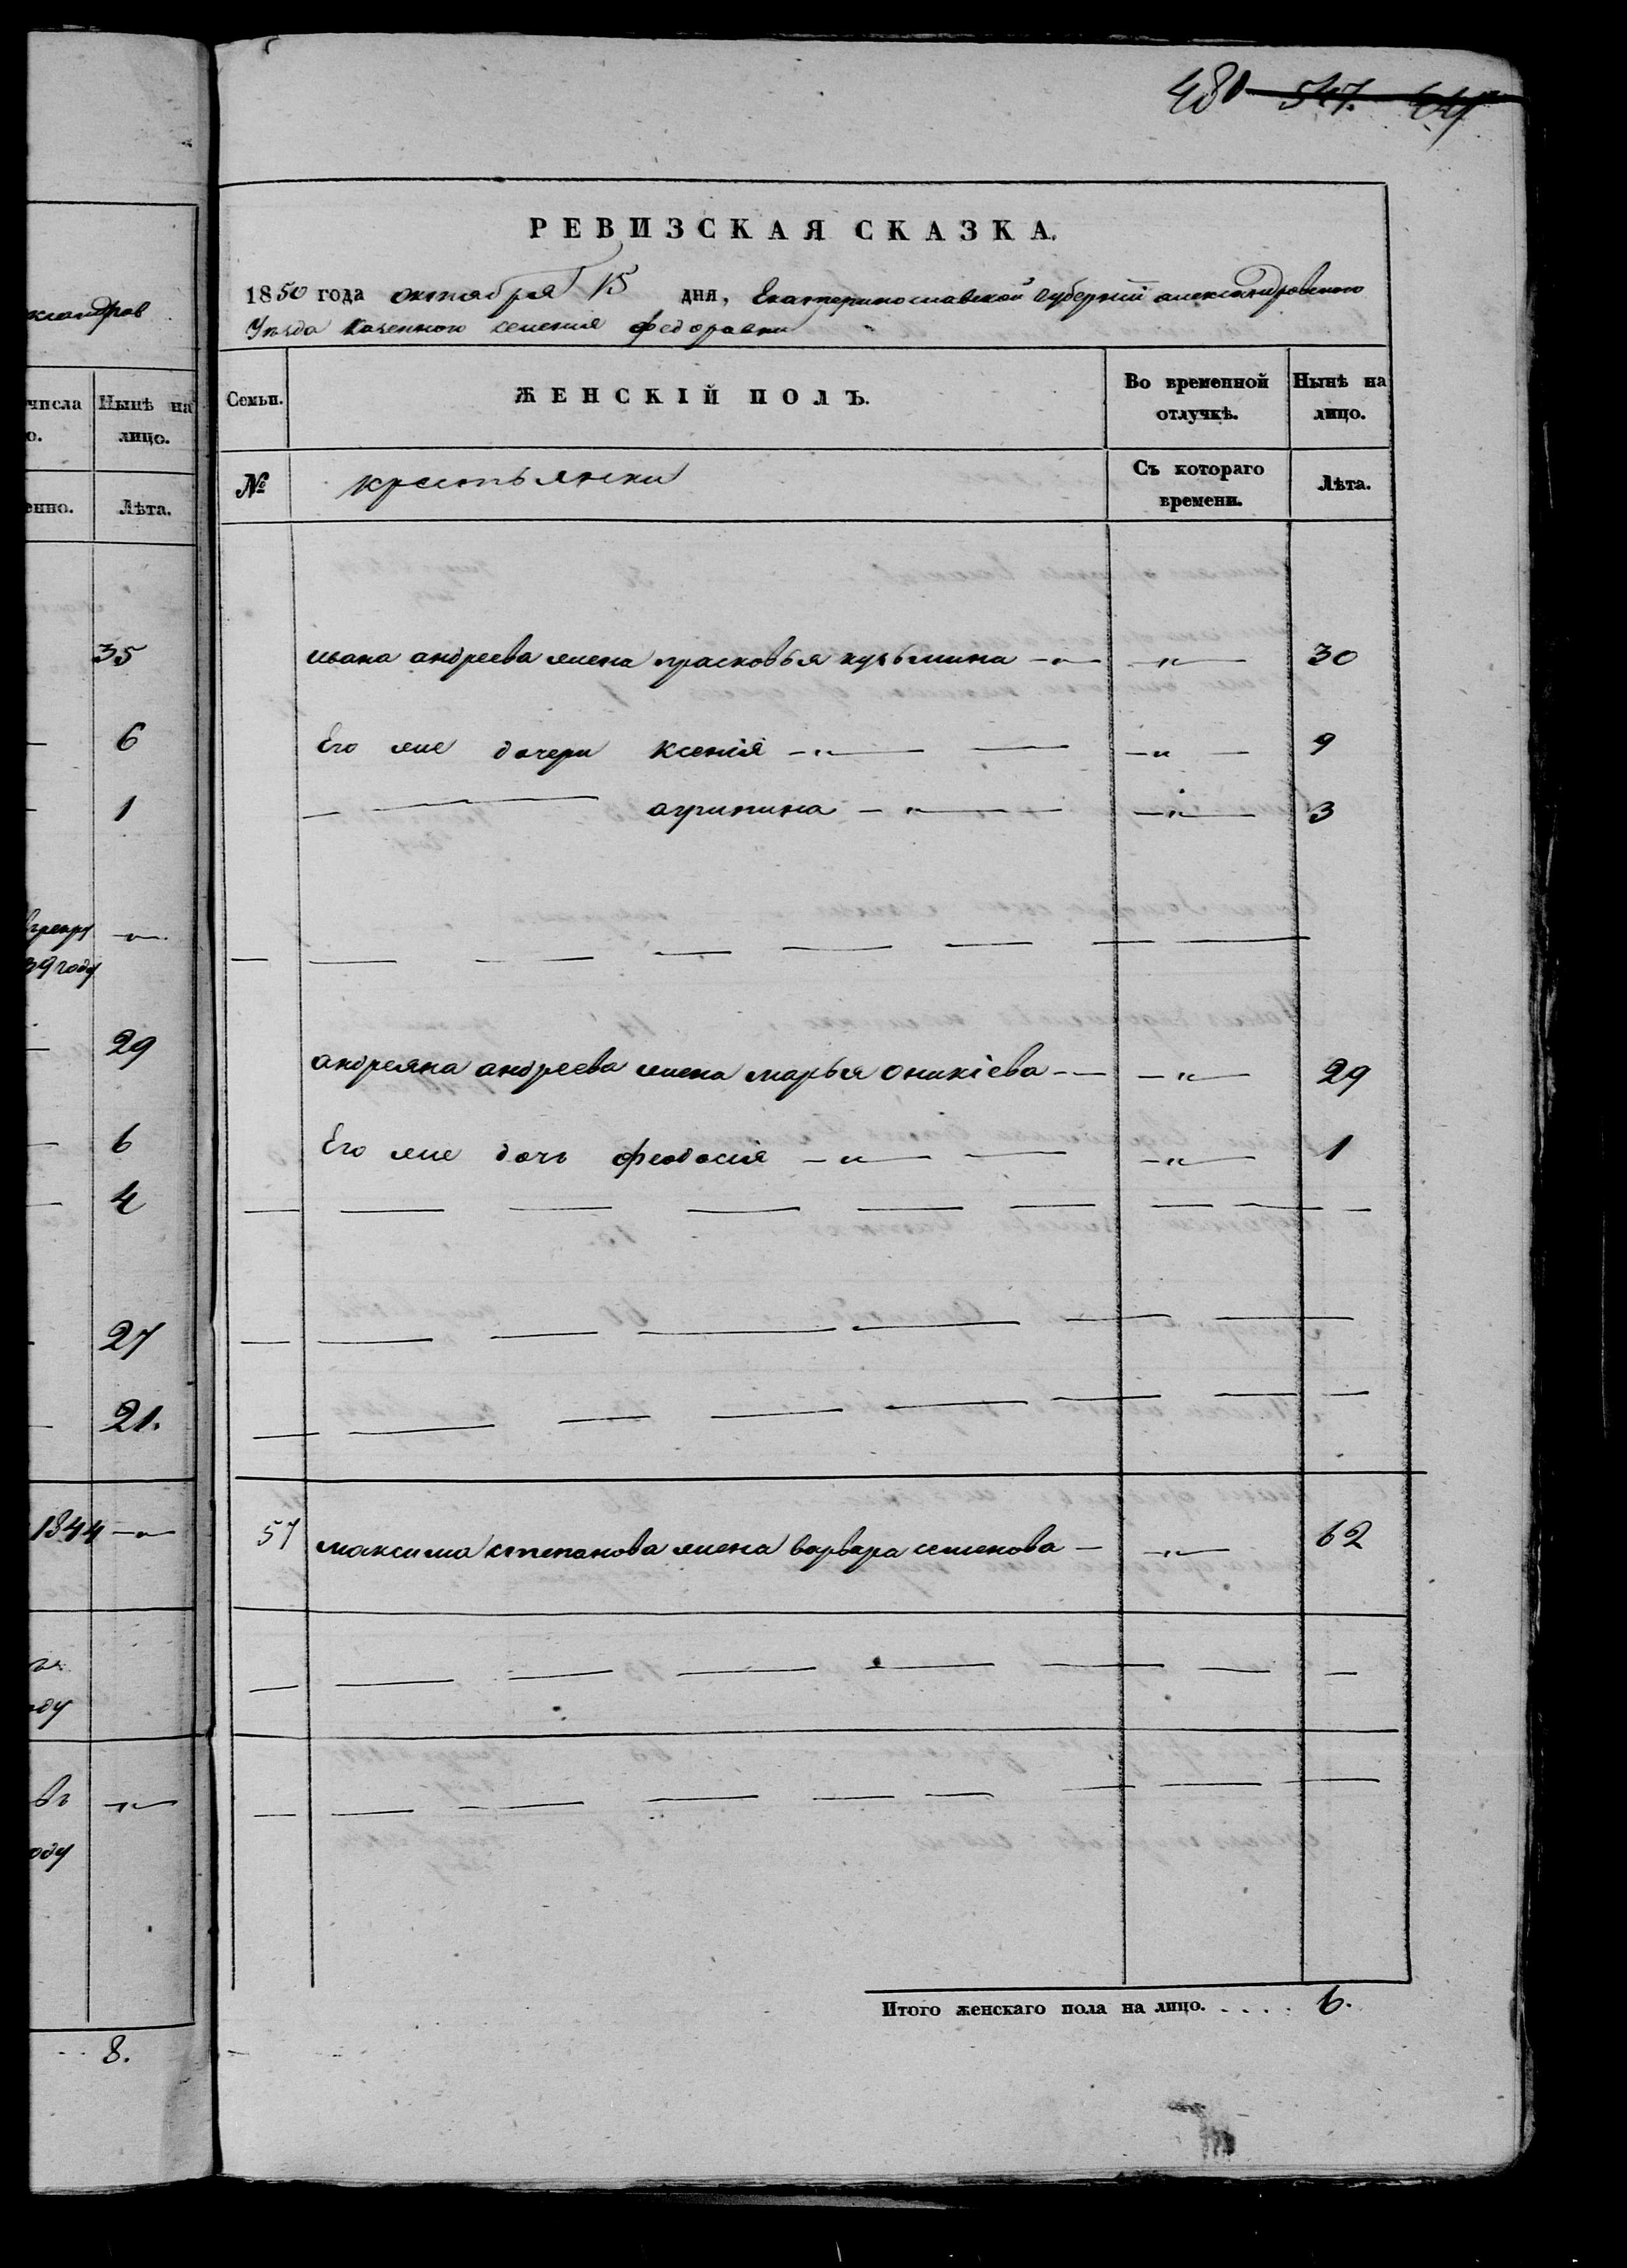 480 547.
РЕВИЗСКАЯ СКАЗКА.
1850 года октября 15 дня, Екатеринославской Губерніи александровского
Уезда Казенного селения федоравки
Семьи. ЖЕНСКІЙ ПОЛЪ. Во временной отлучкѣ. Нынѣ на лицо.
№ крестьянки Съ котораго времени. Лѣта.
ивана андреева жена прасковья кузьмина — „ — — „ — 30
Его же дочери ксенія — „ — — — „ — 9
— — агрипина — „ — — — „ — 3
андреяна андреева жена марья оникіева — — — „ — 29
Его же дочь феодосія — „ — — — „ — 1
57 максима степанова жена варвара семенова — — „ — 62
Итого женскаго пола на лицо. . . . . 6.
числа Нынѣ на
о. лицо.
енно. Лѣта.
35
6
1
39 году
29
6
4
27
21.
1844 — „ —
оду
въ — „ —
оду
8.